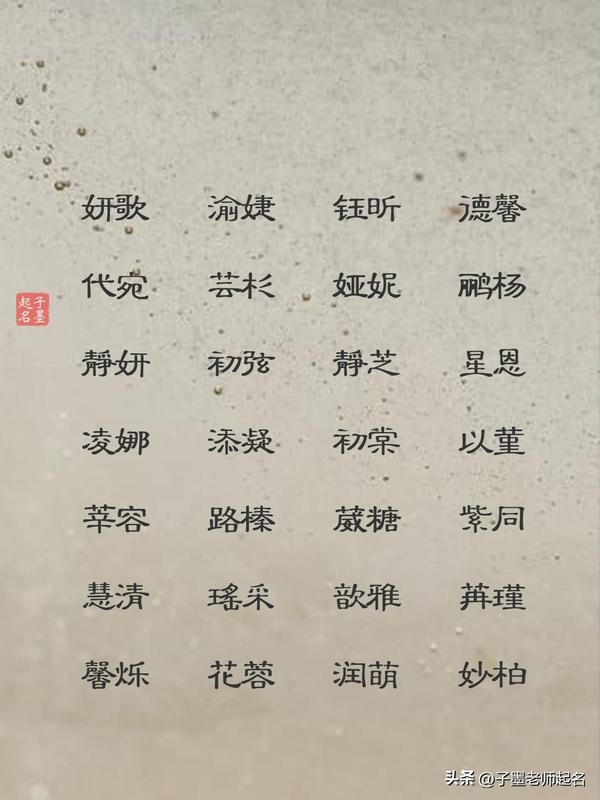 妍歌 渝婕 钰昕 德馨
代宛 芸杉 娅妮 鹂杨
靜妍 初弦 靜芝 星恩
凌娜 添凝 初棠 以菫
莘容 路榛 葳糖 紫同
慧清 瑤采 歆雅 苒瑾
馨烁 花蓉 润萌 妙柏
子墨
起名
头条 @子墨老师起名